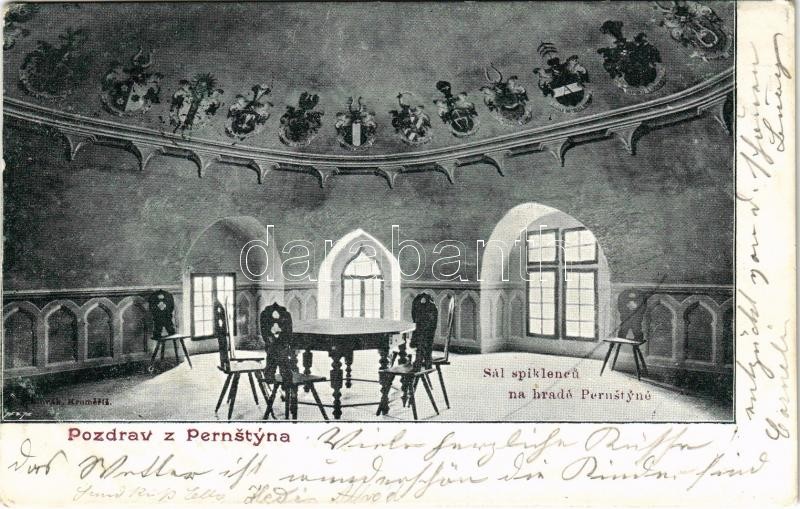 Sál spiklenců
na hradě Pernštýně
Kroměříž.
Pozdrav z Pernštýna
Viele herzliche Küsse
das Wetter ist wunderschön die Kinder sind
entzückt von d.
darabanth